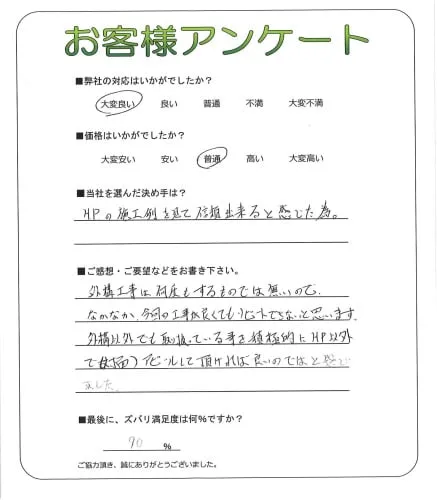 お客様アンケート
■弊社の対応はいかがでしたか?
大変良い 良い 普通 不満 大変不満
■価格はいかがでしたか?
大変安い 安い 普通 高い 大変高い
■当社を選んだ決め手は?
HPの施工例を見て信頼出来ると感じた為。
■ご感想・ご要望などをお書き下さい。
外構工事は何度もするものでは無いので
なかなか、今回の工事が良くてもリピートできないと思います
外構以外でも取扱っている事を積極的にHP以外
で アピールして頂ければ良いのではと感じ
ました。
■最後に、ズバリ満足度は何%ですか?
90 %
ご協力頂き、誠にありがとうございました。